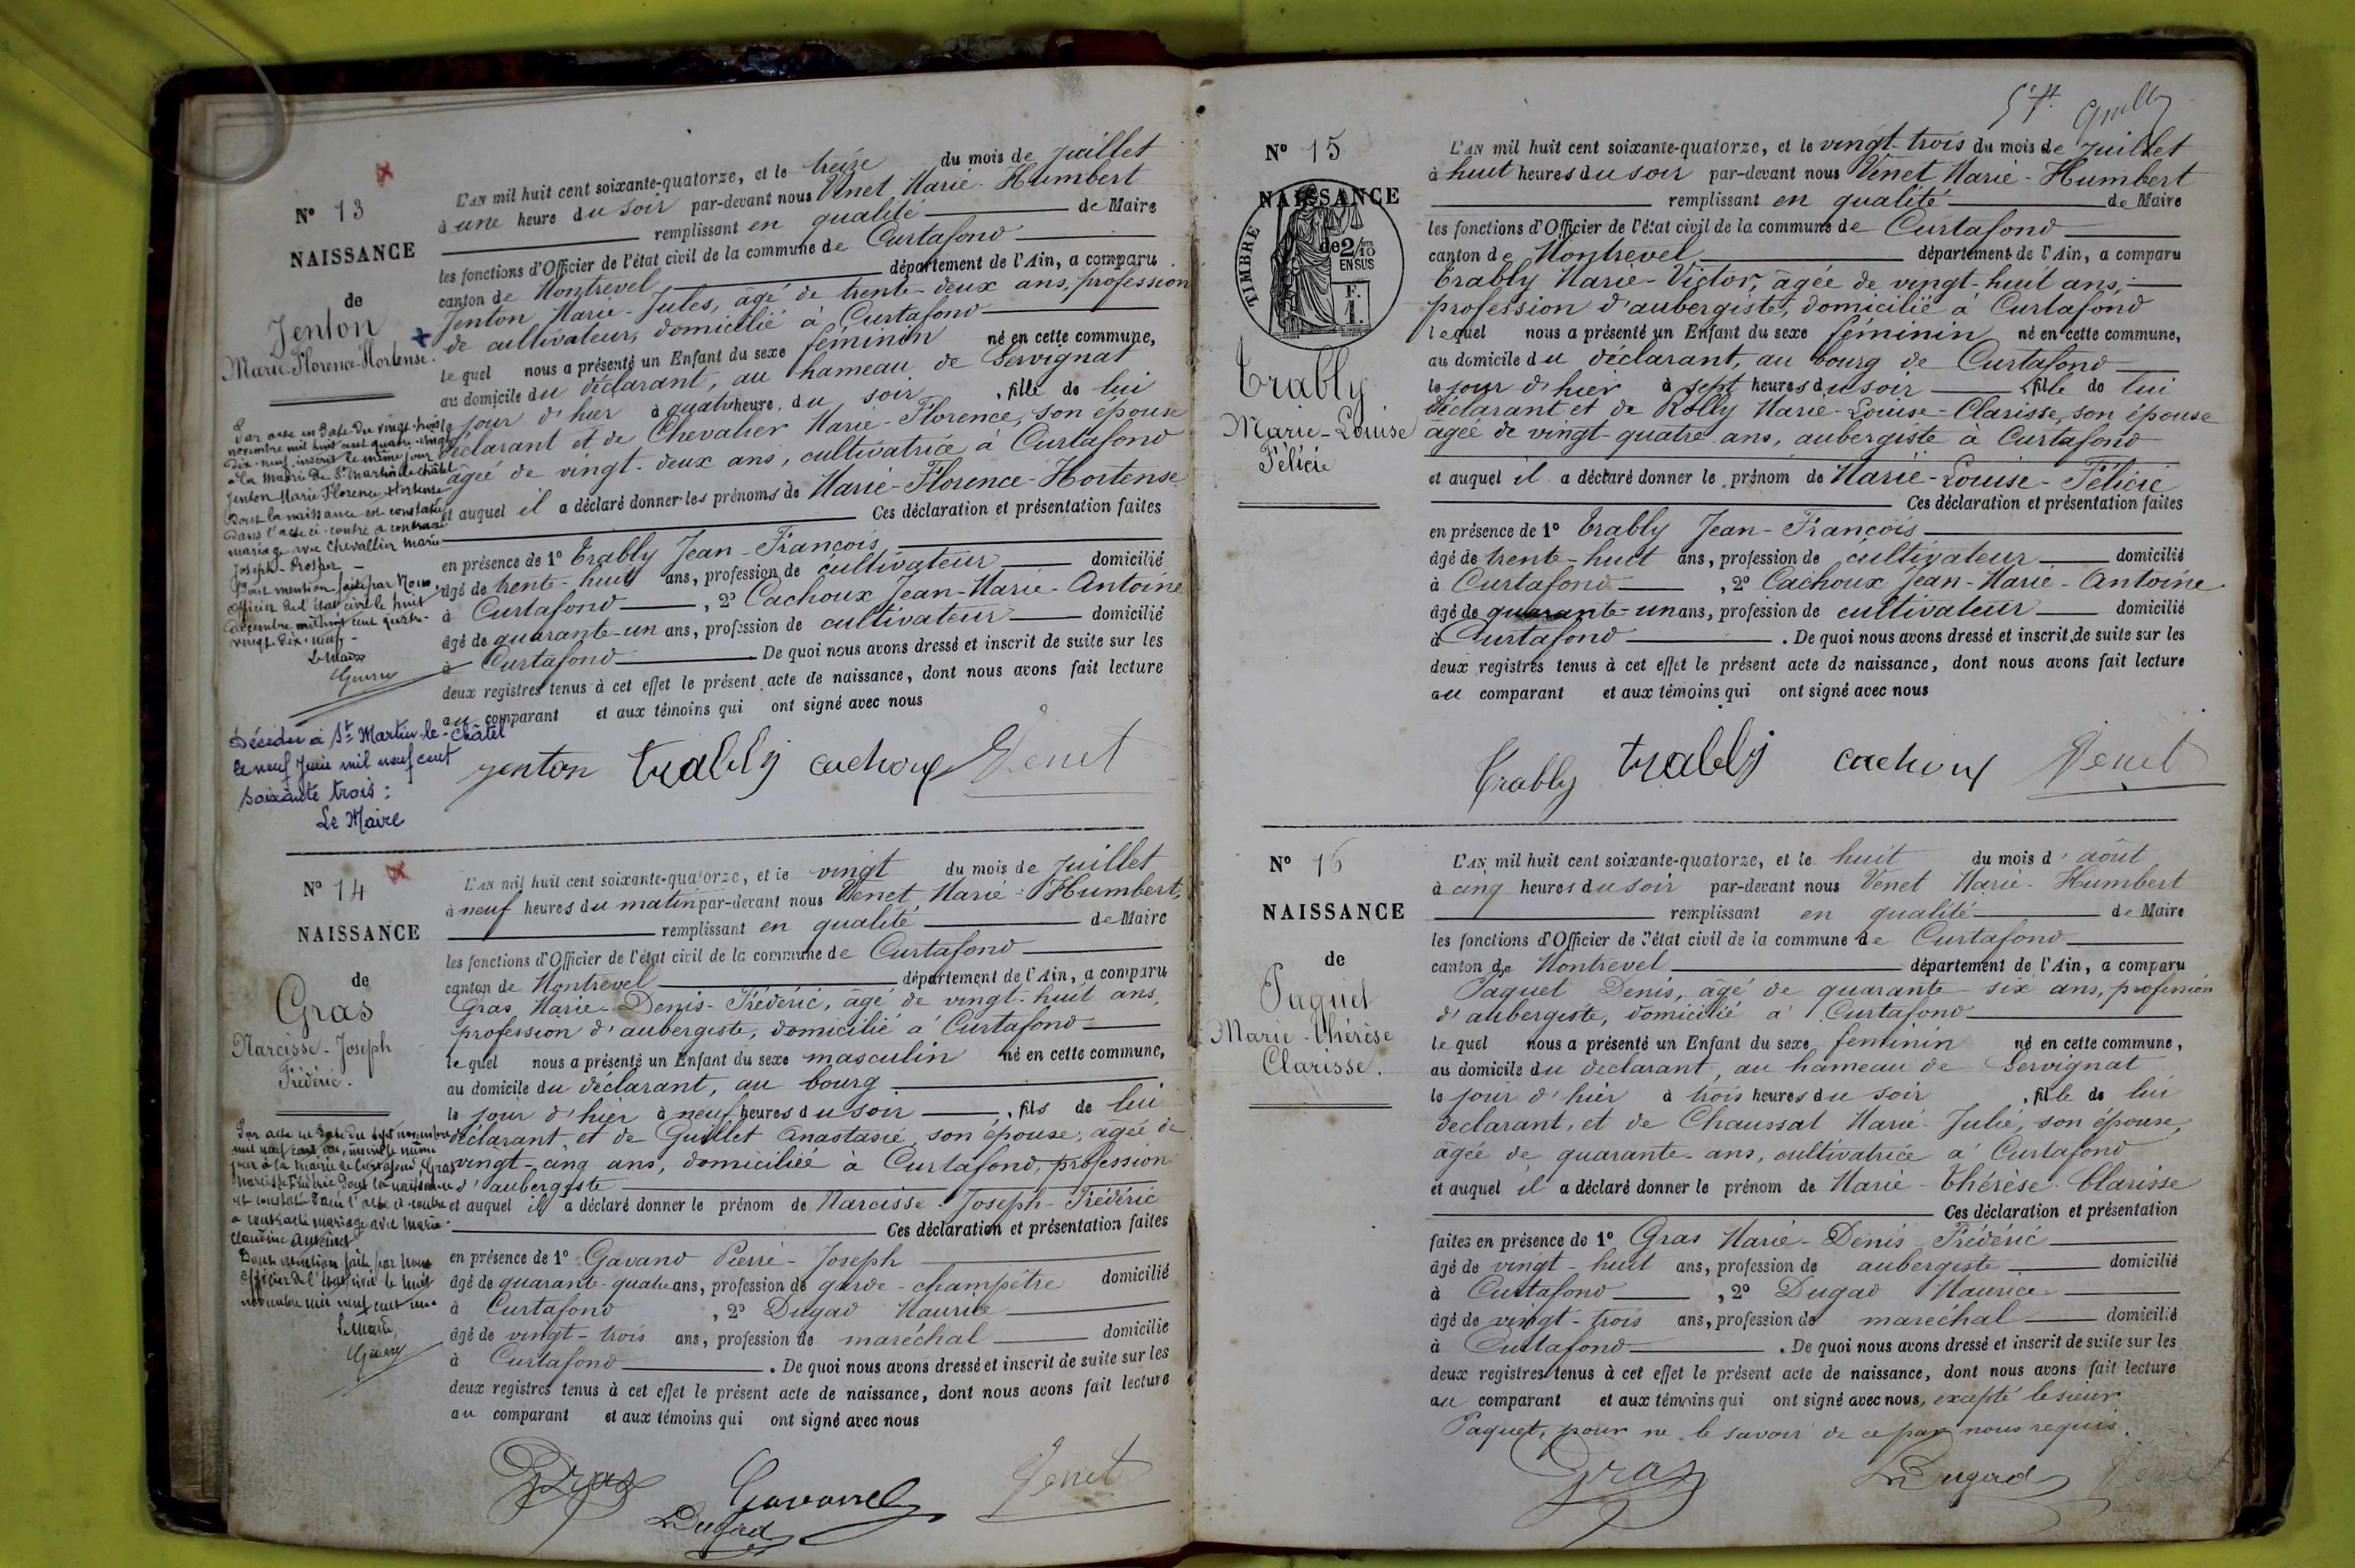 N° 13
NAISSANCE
de
Jenton
Marie-Florence-Hortense.
L'AN mil huit cent soixante-quatorze, et le treize du mois de juillet
à une heure du soir par-devant nous Venet Marie-Humbert
remplissant en qualité de Maire
les fonctions d'Officier de l'état civil de la commune de Curtafond
canton de Montrevel département de l'Ain, a comparu
Jenton Marie-Jules, âgé de trente-deux ans, profession
de cultivateur, domicilié à Curtafond
lequel nous a présenté un Enfant du sexe féminin né en cette commune,
au domicile du déclarant, au hameau de Servignat
le jour d'hier à quatre heure, du soir, fille de lui
déclarant et de Chevalier Marie-Florence, son épouse
âgée de vingt-deux ans, cultivatrice à Curtafond
et auquel il a déclaré donner les prénoms de Marie-Florence-Hortense
Ces déclaration et présentation faites
en présence de 1° Trably Jean-François
âgé de trente-huit ans, profession de cultivateur domicilié
à Curtafond, 2° Cachoux Jean-Marie-Antoine
âgé de quarante-un ans, profession de cultivateur domicilié
à Curtafond. De quoi nous avons dressé et inscrit de suite sur les
deux registres tenus à cet effet le présent acte de naissance, dont nous avons fait lecture
au comparant et aux témoins qui ont signé avec nous
Par acte en date du vingt-trois
novembre mil huit cent quatre-vingt
dix-neuf inscrit le même jour
à la mairie de St Martin le châtel
Jenton Marie Florence Hortense
dont la naissance est constatée
dans l'acte ci-contre a contracté
mariage avec Chevallier Marie
Joseph-Prosper
Dont mention faite par Nous
officier de l'état civil le huit
décembre mil huit cent quatre-
vingt-dix-neuf-
Le Maire
Décédée à St Martin-le-Châtel
le neuf Juin mil neuf cent
soixante trois :
Le Maire
Jenton Trably cachoux Venet
N° 14
NAISSANCE
de
Gras
Narcisse-Joseph
Frédéric.
L'AN mil huit cent soixante-quatorze, et le vingt du mois de juillet
à neuf heures du matin par-devant nous Venet Marie-Humbert,
remplissant en qualité de Maire
les fonctions d'Officier de l'état civil de la commune de Curtafond
canton de Montrevel département de l'Ain, a comparu
Gras Marie-Denis-Frédéric, âgé de vingt-huit ans,
profession d'aubergiste, domicilié à Curtafond
lequel nous a présenté un Enfant du sexe masculin né en cette commune,
au domicile du déclarant, au bourg
le jour d'hier à neuf heures du soir, fils de lui
déclarant et de Guillet Anastasie, son épouse, âgée de
vingt-cinq ans, domiciliée à Curtafond, profession
d'aubergiste
et auquel il a déclaré donner le prénom de Narcisse-Joseph-Frédéric
Ces déclaration et présentation faites
en présence de 1° Gavand Pierre-Joseph
âgé de quarante-quatre ans, profession de garde-champêtre domicilié
à Curtafond, 2° Dugad Maurice
âgé de vingt-trois ans, profession de maréchal domicilié
à Curtafond. De quoi nous avons dressé et inscrit de suite sur les
deux registres tenus à cet effet le présent acte de naissance, dont nous avons fait lecture
au comparant et aux témoins qui ont signé avec nous
Par acte en date du sept novembre
mil neuf cent un, inscrit le même
jour à la mairie de Curtafond, Gras
Narcisse Frédéric dont la naissance
est constatée dans l'acte ci-contre
a contracté mariage avec Marie-
Claudine
Dont mention faite par Nous
officier de l'état civil le huit
novembre mil neuf cent un.
Le Maire,
Gras Gavand Venet
Dugad
N° 15
NAISSANCE
TIMBRE
de 2/10 EN SUS
Trably
Marie-Louise
Félicie
L'AN mil huit cent soixante-quatorze, et le vingt-trois du mois de juillet
à huit heures du soir par-devant nous Venet Marie-Humbert
remplissant en qualité de Maire
les fonctions d'Officier de l'état civil de la commune de Curtafond
canton de Montrevel département de l'Ain, a comparu
Trably Marie-Victor, âgée de vingt-huit ans,
profession d'aubergiste, domicilié à Curtafond
lequel nous a présenté un Enfant du sexe féminin né en cette commune,
au domicile du déclarant, au bourg de Curtafond
le jour d'hier à sept heures du soir fille de lui
déclarant et de Rolly Marie-Louise-Clarisse, son épouse
âgée de vingt-quatre ans, aubergiste à Curtafond
et auquel il a déclaré donner le prénom de Marie-Louise-Félicie
Ces déclaration et présentation faites
en présence de 1° Trably Jean-François
âgé de trente-huit ans, profession de cultivateur domicilié
à Curtafond, 2° Cachoux Jean-Marie-Antoine
âgé de quarante-un ans, profession de cultivateur domicilié
à Curtafond. De quoi nous avons dressé et inscrit de suite sur les
deux registres tenus à cet effet le présent acte de naissance, dont nous avons fait lecture
au comparant et aux témoins qui ont signé avec nous
Trably Trably cachoux Venet
N° 16
NAISSANCE
de
Paquet
Marie-Thérèse
Clarisse.
L'AN mil huit cent soixante-quatorze, et le huit du mois d'août
à cinq heures du soir par-devant nous Venet Marie-Humbert
remplissant en qualité de Maire
les fonctions d'Officier de l'état civil de la commune de Curtafond
canton de Montrevel département de l'Ain, a comparu
Paquet Denis, âgé de quarante-six ans, profession
d'aubergiste, domicilié à Curtafond
lequel nous a présenté un Enfant du sexe féminin né en cette commune,
au domicile du déclarant, au hameau de Servignat
le jour d'hier à trois heures du soir, fille de lui
déclarant, et de Chaussat Marie-Julie, son épouse,
âgée de quarante-ans, cultivatrice à Curtafond
et auquel il a déclaré donner le prénom de Marie-Thérèse-Clarisse
Ces déclaration et présentation
faites en présence de 1° Gras Marie-Denis-Frédéric
âgé de vingt-huit ans, profession de aubergiste domicilié
à Curtafond, 2° Dugad Maurice
âgé de vingt-trois ans, profession de maréchal domicilié
à Curtafond. De quoi nous avons dressé et inscrit de suite sur les
deux registres tenus à cet effet le présent acte de naissance, dont nous avons fait lecture
au comparant et aux témoins qui ont signé avec nous, excepté le sieur
Paquet, pour ne le savoir de ce par nous requis.
Gras Dugad Venet